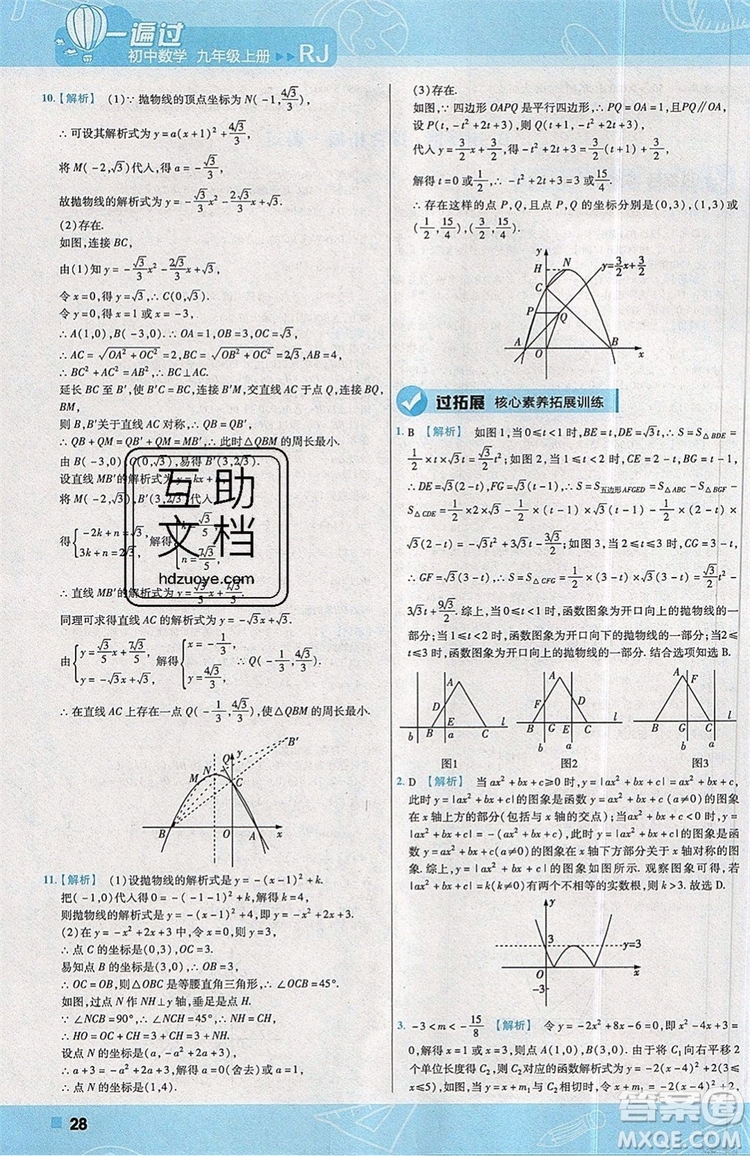 一遍过
初中数学 九年级上册 ▸▸ RJ
10.【解析】 (1)∵抛物线的顶点坐标为 N(-1, 4√3/3),
∴可设其解析式为 y=a(x+1)²+4√3/3
将 M(-2,√3)代入,得√3=a(-2+1)²+4√3/3,解得 a=-√3/3,
故抛物线的解析式为 y=-√3/3x²-2√3/3x+√3.
(2)存在.
如图,连接 BC,
由(1)知 y=-√3/3x²-2√3/3x+√3,
令 x=0,得 y=√3,∴C(0,√3).
令 y=0,得 x=1或 x=-3,
∴A(1,0),B(-3,0).∴OA=1,OB=3,OC=√3,
∴AC=√(OA²+OC²)=2,BC=√(OB²+OC²)=2√3,
∴BC²+AC²=AB²,∴BC⊥AC.
延长 BC至 B',使 B'C=BC,连接 B'M,交直线 AC于点 Q,连接 BQ,BM,
则 B,B'关于直线 AC对称,∴QB=QB',
∴QB+QM=QB'+QM=MB',∴此时△QBM的周长最小.
由 B(-3,0),C(0,√3),易得 B'(3,2√3).
设直线 MB'的解析式为 y=kx+
得{-2k+n=√3, 3k+n=2√3, k=√3/5, n=7√3/5.
∴直线 MB'的解析式为 y=√3/5
同理可求得直线 AC的解析式为 y=-√3x+√3.
由 解得 x=-1/3, y=4√3/3, ∴Q(-1/3, 4√3/3).
∴在直线 AC上存在一点 Q(-1/3, 4√3/3),使△QBM的周长最小.
B'
N
Q
y
M
C
B
O
A
x
11.【解析】 (1)设抛物线的解析式是 y=-(x-1)²+k.
把(-1,0)代入得 0=-(-1-1)²+k,解得 k=4,
则抛物线的解析式是 y=-(x-1)²+4,即 y=-x²+2x+3.
(2)在 y=-x²+2x+3中,令 x=0,则 y=3,
∴点 C的坐标是(0,3),OC=3.
易知点 B的坐标是(3,0),
∴OB=3,∴OC=OB,则△OBC是等腰直角三角形,∴∠OCB=45°,
如图,过点 N作 NH⊥y轴,垂足是点 H.
∵∠NCB=90°,∴∠NCH=45°,∴NH=CH,
∴HO=OC+CH=3+CH=3+NH,
设点 N的坐标是(a,-a²+2a+3),
∴a+3=-a²+2a+3,解得 a=0(舍去)或 a=1,
∴点 N的坐标是(1,4).
28
(3)存在.
如图,∵四边形 OAPQ是平行四边形,∴PQ=OA=1,且 PQ∥OA,
设 P(t,-t²+2t+3),则 Q(t+1,-t²+2t+3),
代入 y=3/2x+3/2,则-t²+2t+3=3/2(t+1)+3/2,
解得 t=0或 t=1/2.
∴存在这样的点 P,Q,且点 P的坐标分别是(0,3),(1,3)或
(1/2,15/4),(3/2,15/4).
y
H
N
y=3/2x+3/2
C
P
Q
A
O
B
x
过拓展 核心素养拓展训练
1. B 【解析】 如图1,当0≤t<1时,BE=t,DE=√3t,∴S=S△BDE=
1/2×t×√3t=√3/2t²;如图2,当1≤t<2时,CE=2-t,BG=t-1,
∴DE=√3(2-t),FG=√3(t-1),∴S=S五边形AFGED=S△ABC-S△BFG-
S△CDE=1/2×2×√3-1/2×(t-1)×√3(t-1)-1/2×(2-t)×
√3(2-t)=-√3t²+3√3t-3√3/2;如图3,当2≤t≤3时,CG=3-t,
∴GF=√3(3-t),∴S=S△CFG=1/2×(3-t)×√3(3-t)=√3/2t²-
3√3t+9√3/2.综上,当0≤t<1时,函数图象为开口向上的抛物线的一
部分;当1≤t<2时,函数图象为开口向下的抛物线的一部分;当2≤
t≤3时,函数图象为开口向上的抛物线的一部分.结合选项知选 B.
A
D
a
b
B
E
C
l
图1
A
F
D
B
G
E
C
l
b
a
图2
A
F
B
G
C
l
b
a
图3
2. D 【解析】 当 ax²+bx+c≥0时,y=ax²+bx+c(a≠0),
此时 y=|ax²+bx+c|的图象是函数 y=ax²+bx+c(a≠0)的图象
在 x轴上方的部分(包括与 x轴的交点);当 ax²+bx+c<0时,
y=-(ax²+bx+c)(a≠0),此时 y=|ax²+bx+c|的图象是函数
y=ax²+bx+c(a≠0)的图象在 x轴下方的部分关于 x轴对称的图
象.故函数 y=|ax²+bx+c|的图象如图所示.观察图象可得,若
|ax²+bx+c|=k(k≠0)有两个不相等的实数根,则 k>3.故选 D.
y
3
y=3
O
x
-3
3. -3<m<-15/8 【解析】 令 y=-2x²+8x-6=0,即 x²-4x+3=0,
解得 x=1或3,则点 A(1,0),B(3,0).由于将 C₁向右平移2
个单位长度得 C₂,则 C₂的解析式为 y=-2(x-4)²+2(3≤x
≤5),如图,当 y=x+m₁与 C₂相切时,令 y=x+m₁=-2(x-4)²+2,
互助
文档
hdzuoye.com
答案圈
MXQE.COM